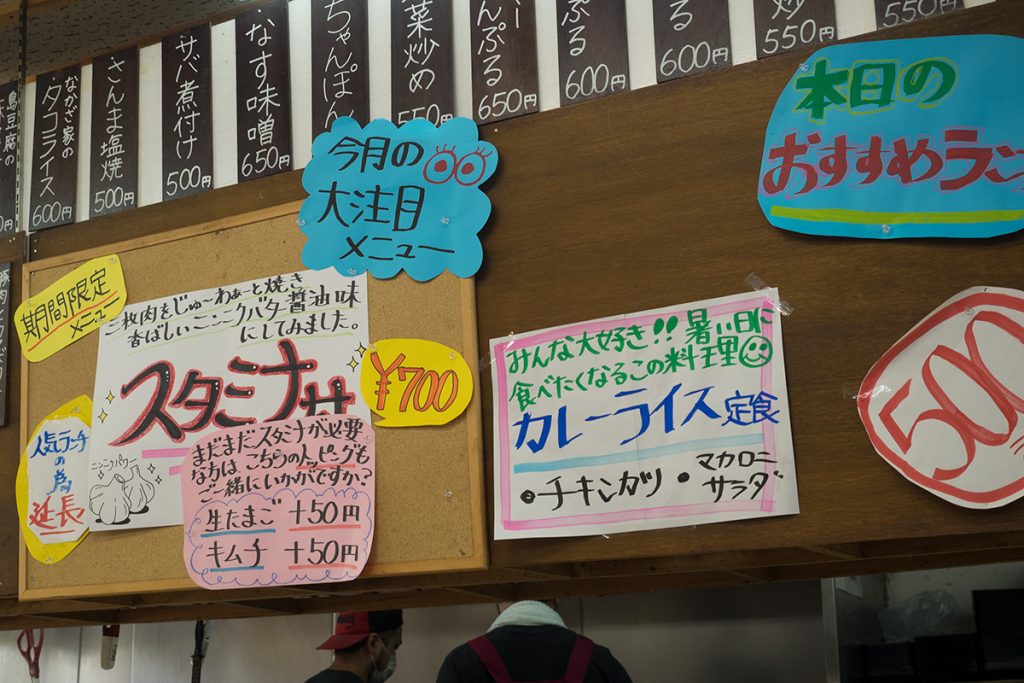 島豆腐の
ながさ家の
タコライス
600円
さんま塩焼
500円
サバ煮付け
500円
なす味噌
650円
ちゃんぽん
菜炒め
550円
んぷる
650円
ぷる
600円
る
600円
炒
550円
550円
今月の
大注目
メニュー
本日の
おすすめラン
期間限定
メニュー
二枚肉をじゅ〜わぁ〜と焼き
香ばしいニンニクバター醤油味
にしてみました。
スタミナ丼
¥700
人気ランチ
の為
延長
ニンニクパワー
まだまだスタミナが必要
な方は、こちらのトッピングも
ご一緒にいかがですか?
生たまご +50円
キムチ +50円
みんな大好き!!暑い日に
食べたくなるこの料理
カレーライス定食
•チキンカツ •マカロニサラダ
500